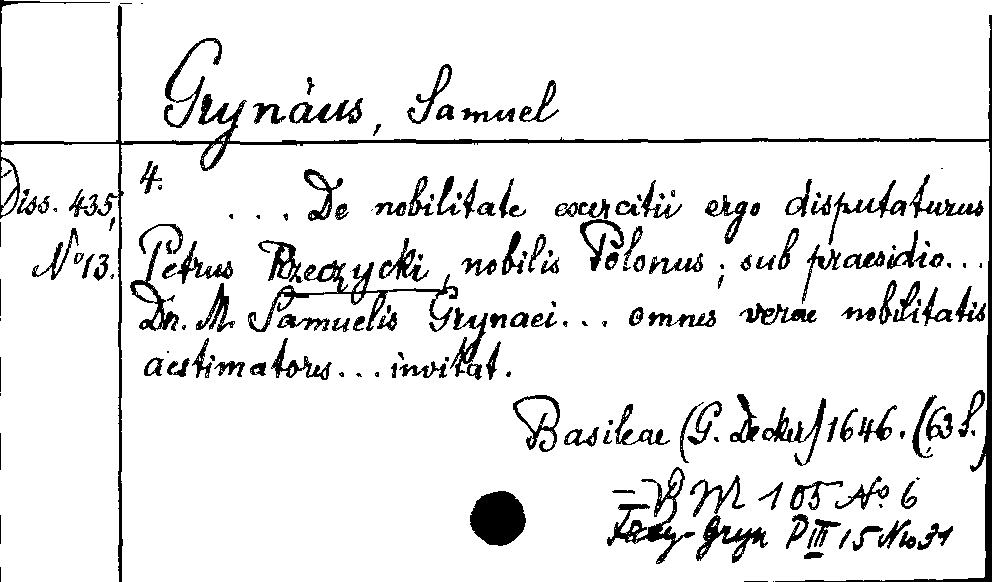 Grynäus, Samuel
Diss. 435,
No 13.
4.
.... De nobilitate exercitii ergo disputaturus
Petrus Rzeczycki, nobilis Polonus; sub praesidio...
Dn. M. Samuelis Grynaei... omnes verae nobilitatis
aestimatores... invitat.
Basileae (G. Decker) 1646. (63 S.)
= B M 105 No 6
Frey-Gryn P III 15 No 31